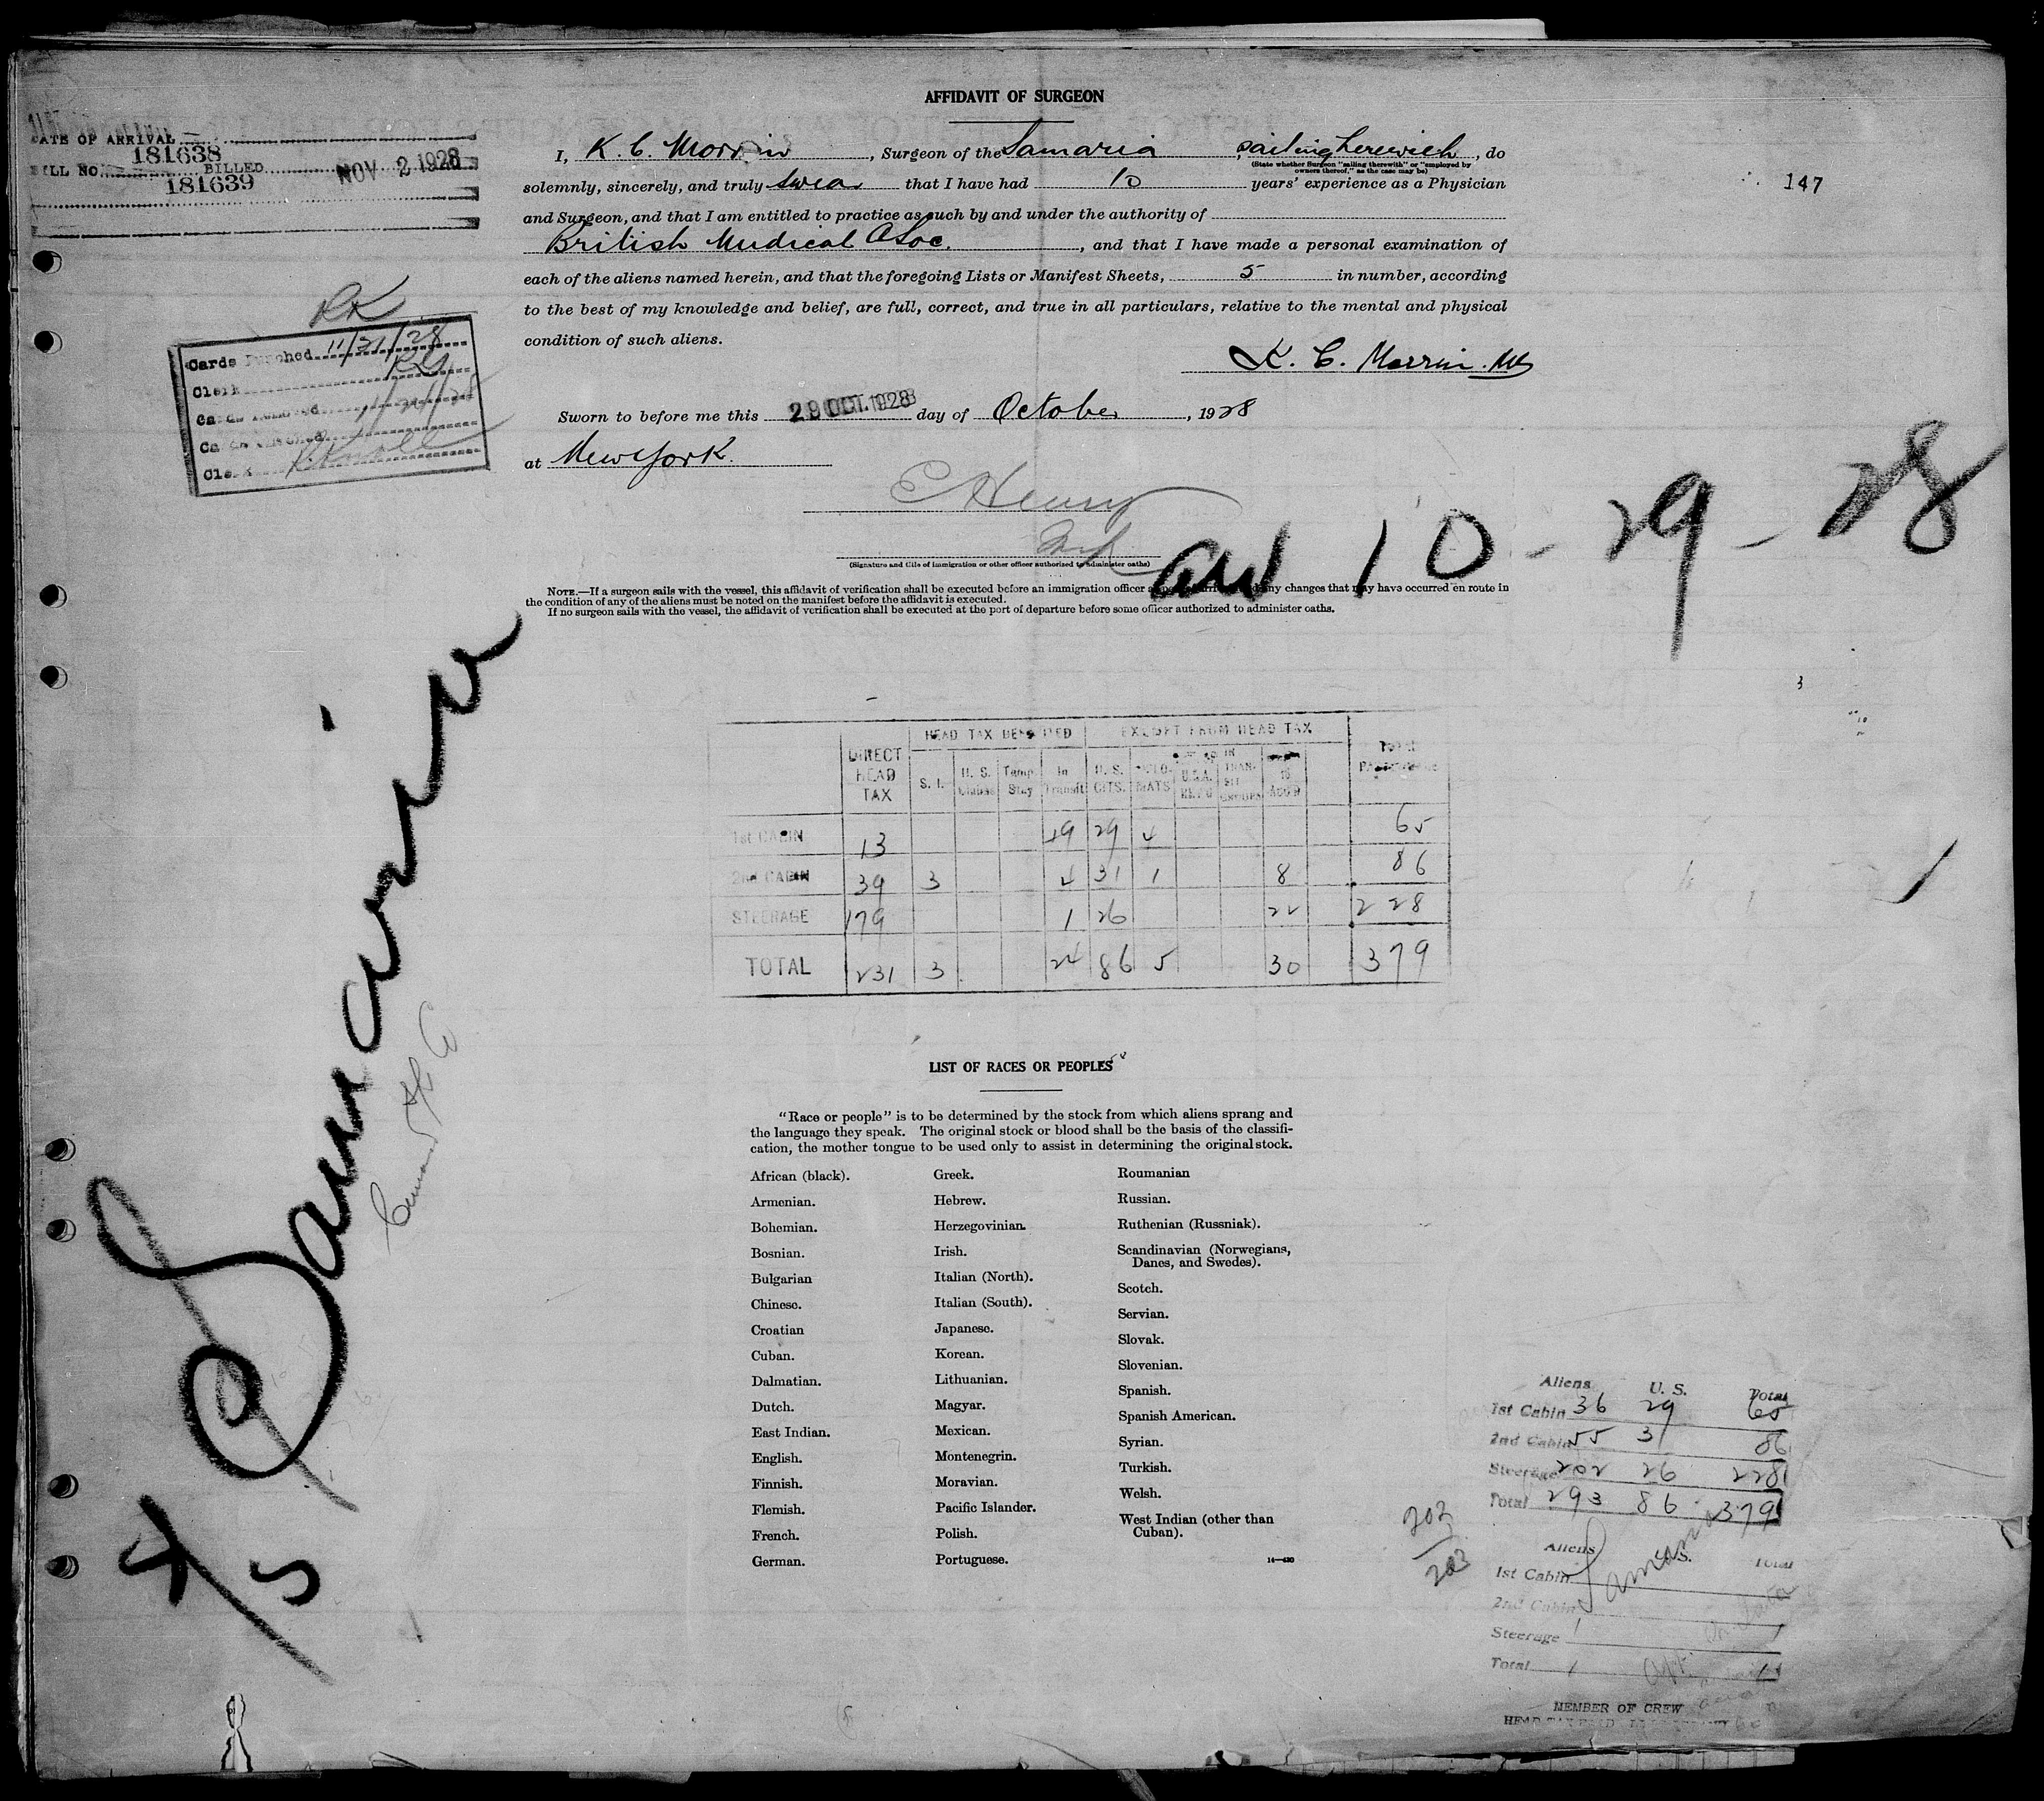 AFFIDAVIT OF SURGEON
DATE OF ARRIVAL
181638
BILL NO. BILLED NOV 2 1928
181639
147
I, K. C. Morrin, Surgeon of the Samaria, sailing herewith, do
(State whether Surgeon "sailing therewith" or "employed by
owners thereof," as the case may be)
solemnly, sincerely, and truly swear that I have had 10 years' experience as a Physician
and Surgeon, and that I am entitled to practice as such by and under the authority of
British Medical Asoc., and that I have made a personal examination of
each of the aliens named herein, and that the foregoing Lists or Manifest Sheets, 5 in number, according
to the best of my knowledge and belief, are full, correct, and true in all particulars, relative to the mental and physical
condition of such aliens.
K. C. Morrin. MD
Sworn to before me this 29 OCT. 1928 day of October, 1928
at New York.
E Henry
(Signature and title of immigration or other officer authorized to administer oaths)
RK
Cards Punched 11/21/28
Clerk
Clerk
arr 10-29-28
NOTE.—If a surgeon sails with the vessel, this affidavit of verification shall be executed before an immigration officer any changes that may have occurred en route in
the condition of any of the aliens must be noted on the manifest before the affidavit is executed.
If no surgeon sails with the vessel, the affidavit of verification shall be executed at the port of departure before some officer authorized to administer oaths.
3
HEAD TAX EXEMPT FROM HEAD TAX
DIRECT HEAD TAX S. I. U. S. Temp. Stay In Transit U. S. CITS. U.S.A. Total
1st CABIN 13 19 29 4 65
2nd CABIN 39 3 4 31 1 8 86
STEERAGE 179 1 26 22 228
TOTAL 231 3 24 86 5 30 379
Samaria
Cunard
4/5
LIST OF RACES OR PEOPLES
"Race or people" is to be determined by the stock from which aliens sprang and
the language they speak. The original stock or blood shall be the basis of the classifi-
cation, the mother tongue to be used only to assist in determining the original stock.
African (black).
Armenian.
Bohemian.
Bosnian.
Bulgarian
Chinese.
Croatian
Cuban.
Dalmatian.
Dutch.
East Indian.
English.
Finnish.
Flemish.
French.
German.
Greek.
Hebrew.
Herzegovinian.
Irish.
Italian (North).
Italian (South).
Japanese.
Korean.
Lithuanian.
Magyar.
Mexican.
Montenegrin.
Moravian.
Pacific Islander.
Polish.
Portuguese.
Roumanian
Russian.
Ruthenian (Russniak).
Scandinavian (Norwegians,
Danes, and Swedes).
Scotch.
Servian.
Slovak.
Slovenian.
Spanish.
Spanish American.
Syrian.
Turkish.
Welsh.
West Indian (other than
Cuban).
Aliens U. S. Total
1st Cabin 36 29 65
2nd Cabin 55 31 86
Steerage 202 26 228
Total 293 86 379
202
203
Aliens U.S. Total
Samaria
1st Cabin
2nd Cabin
Steerage 1 1
Total 1 1
MEMBER OF CREW